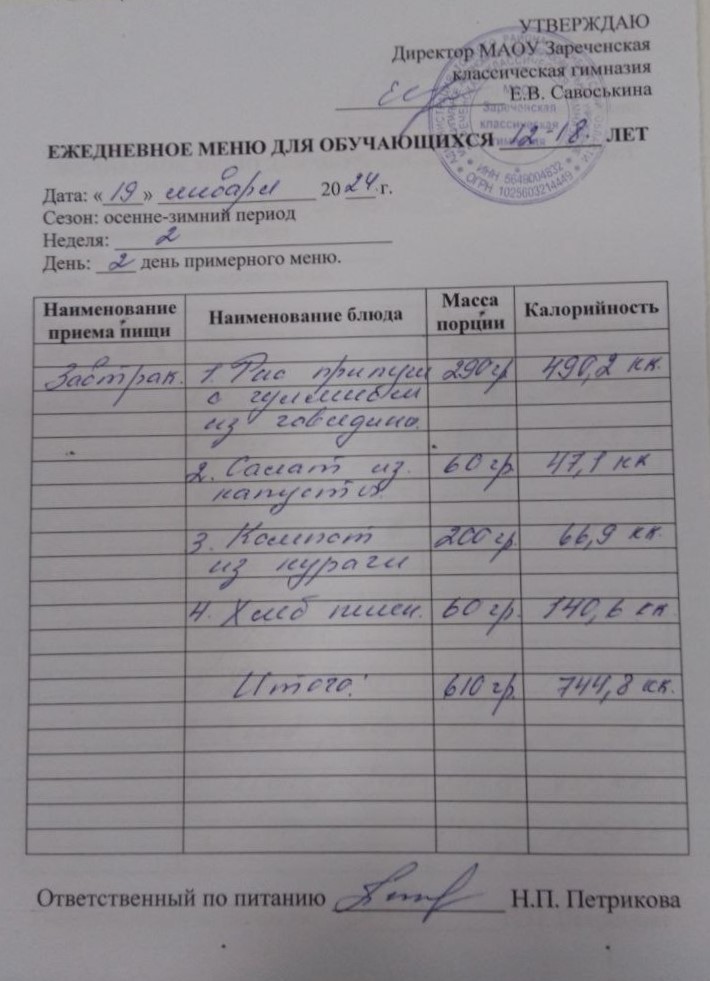 УТВЕРЖДАЮ
Директор МАОУ Зареченская
классическая гимназия
Е.В. Савоськина
Зареченская
классическая
гимназия
ИНН 5649004832 * ОГРН 1025603214449
ЕЖЕДНЕВНОЕ МЕНЮ ДЛЯ ОБУЧАЮЩИХСЯ 12-18. ЛЕТ
Дата: «19» января 2024 г.
Сезон: осенне-зимний период
Неделя: 2
День: 2 день примерного меню.
Наименование приема пищи Наименование блюда Масса порции Калорийность
Завтрак. 1. Рис припущ 290 гр 490,2 кк.
с гуляшом
из говядины.
2. Салат из 60 гр 47,1 кк
капусты.
3. Компот 200 гр 66,9 кк.
из кураги
4. Хлеб пшен. 60 гр. 140,6 кк.
Итого: 610 гр. 744,8 кк.
Ответственный по питанию Н.П. Петрикова